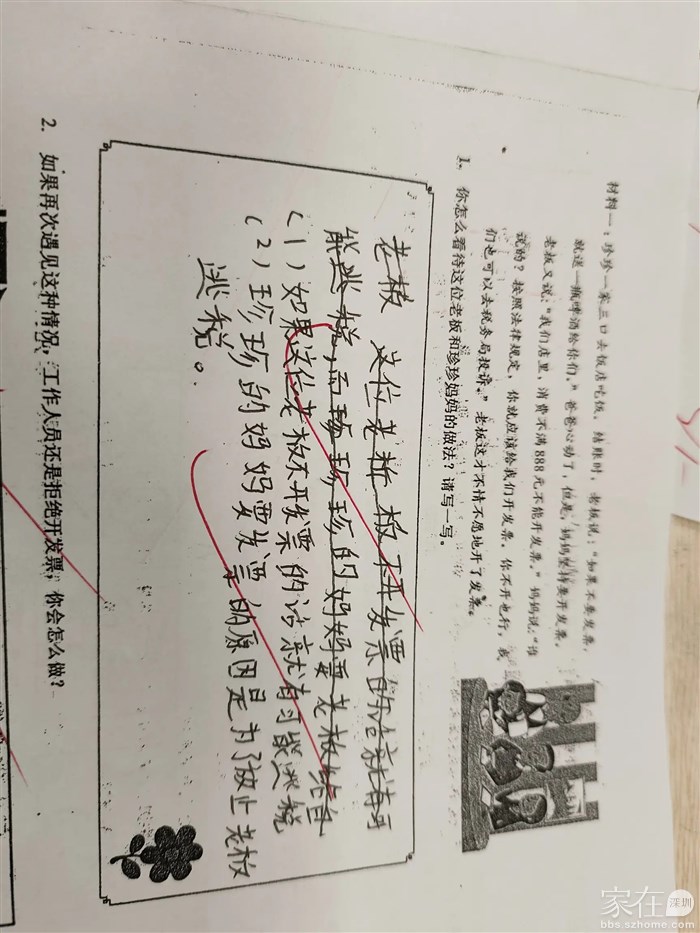 材料一：珍珍一家三口去饭店吃饭。结账时，老板说：“如果不要发票，
就送一瓶啤酒给你们。”爸爸心动了，但是，妈妈坚持要开发票。
老板又说：“我们店里，消费不满888元不能开发票。”妈妈说：“谁
说的？按照法律规定，你就应该给我们开发票。你不开也行，我
们也可以去税务局投诉。”老板这才不情不愿地开了发票。
1、你怎么看待这位老板和珍珍妈妈的做法？请写一写。
老板 这位老板不开发票的话就有可
能逃税，而珍珍的妈妈要老板给自
(1)如果这位老板不开发票的话就有可能逃税
(2)珍珍的妈妈要发票的原因是为了放止老板
逃税。
2、如果再次遇见这种情况，工作人员还是拒绝开发票，你会怎么做？
家在深圳
bbs.szhome.com